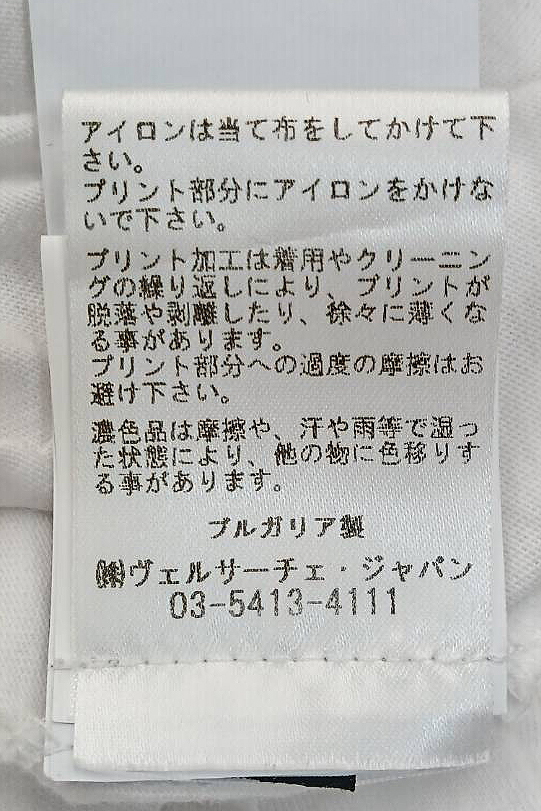 アイロンは当て布をしてかけて下
さい。
プリント部分にアイロンをかけな
いで下さい。
プリント加工は着用やクリーニン
グの繰り返しにより、プリントが
脱落や剥離したり、徐々に薄くな
る事があります。
プリント部分への過度の摩擦はお
避け下さい。
濃色品は摩擦や、汗や雨等で湿っ
た状態により、他の物に色移りす
る事があります。
ブルガリア製
㈱ヴェルサーチェ・ジャパン
03-5413-4111